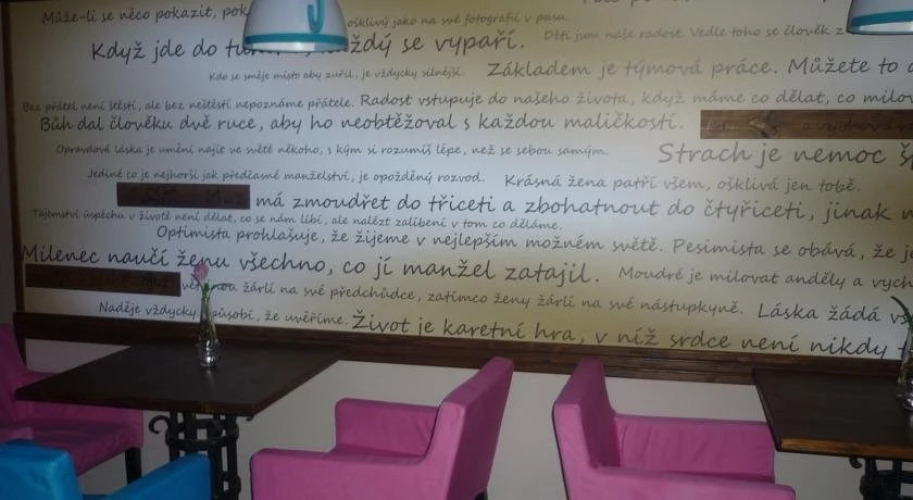 Může-li se něco pokazit, pok
ošklivý jako na své fotografii v pasu.
Když jde do tu ždý se vypaří.
Děti jsou naše radost. Vedle toho se člověk z
Kdo se směje místo aby zuřil, je vždycky silnější.
Základem je týmová práce. Můžete to
Bez přátel není štěstí, ale bez neštěstí nepoznáme přátele.
Radost vstupuje do našeho života, když máme co dělat, co milov
Bůh dal člověku dvě ruce, aby ho neobtěžoval s každou maličkostí.
Opravdová láska je umění najít ve světě někoho, s kým si rozumíš lépe, než se sebou samým.
Strach je nemoc
Jediné co je nejhorší jak předčasné manželství, je opožděný rozvod.
Krásná žena patří všem, ošklivá jen tobě.
má zmoudřet do třiceti a zbohatnout do čtyřiceti, jinak
Tajemství úspěchu v životě není dělat, co se nám líbí, ale nalézt zalíbení v tom co děláme.
Optimista prohlašuje, že žijeme v nejlepším možném světě. Pesimista se obává, že je
Milenec naučí ženu všechno, co jí manžel zatajil.
Moudré je milovat anděly a vych
žárlí na své předchůdce, zatímco ženy žárlí na své nástupkyně.
Láska žádá
Naděje vždycky působí, že uvěříme.
Život je karetní hra, v níž srdce není nikdy